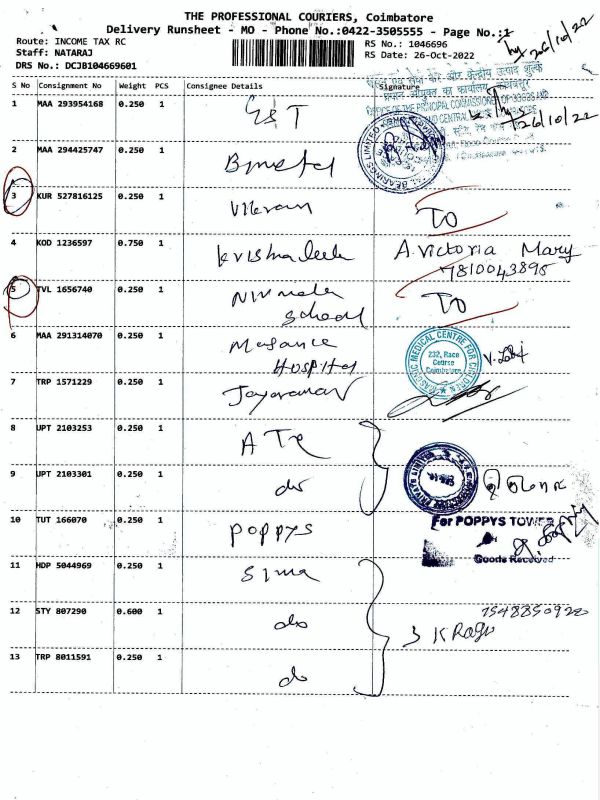 THE PROFESSIONAL COURIERS, Coimbatore
Delivery Runsheet - MO - Phone No.:0422-3505555 - Page No.:1
26/10/22
Route: INCOME TAX RC
Staff: NATARAJ
DRS No.: DCJB104669601
RS No.: 1046696
RS Date: 26-Oct-2022
S No Consignment No Weight PCS Consignee Details Signature
1 MAA 293954168 0.250 1 GST
26/10/22
2 MAA 294425747 0.250 1 Bmetal
3 KUR 527816125 0.250 1 Vikram TO
4 KOD 1236597 0.750 1 Krishnaleela A.Victoria Mary
7810043895
5 TVL 1656740 0.250 1 Nirmala TO
School
6 MAA 291314070 0.250 1 Masonic
Hospital
MASONIC MEDICAL CENTRE FOR CHILDREN
232, Race
Course
Coimbatore
7 TRP 1571229 0.250 1 Jayaraman
8 UPT 2103253 0.250 1
9 UPT 2103301 0.250 1 do
10 TUT 166070 0.250 1 POPPYS
For POPPYS TOWER
Goods Received
11 HDP 5044969 0.250 1 Sima
12 STY 807290 0.600 1 do
S K Ragu
13 TRP 8011591 0.250 1 do